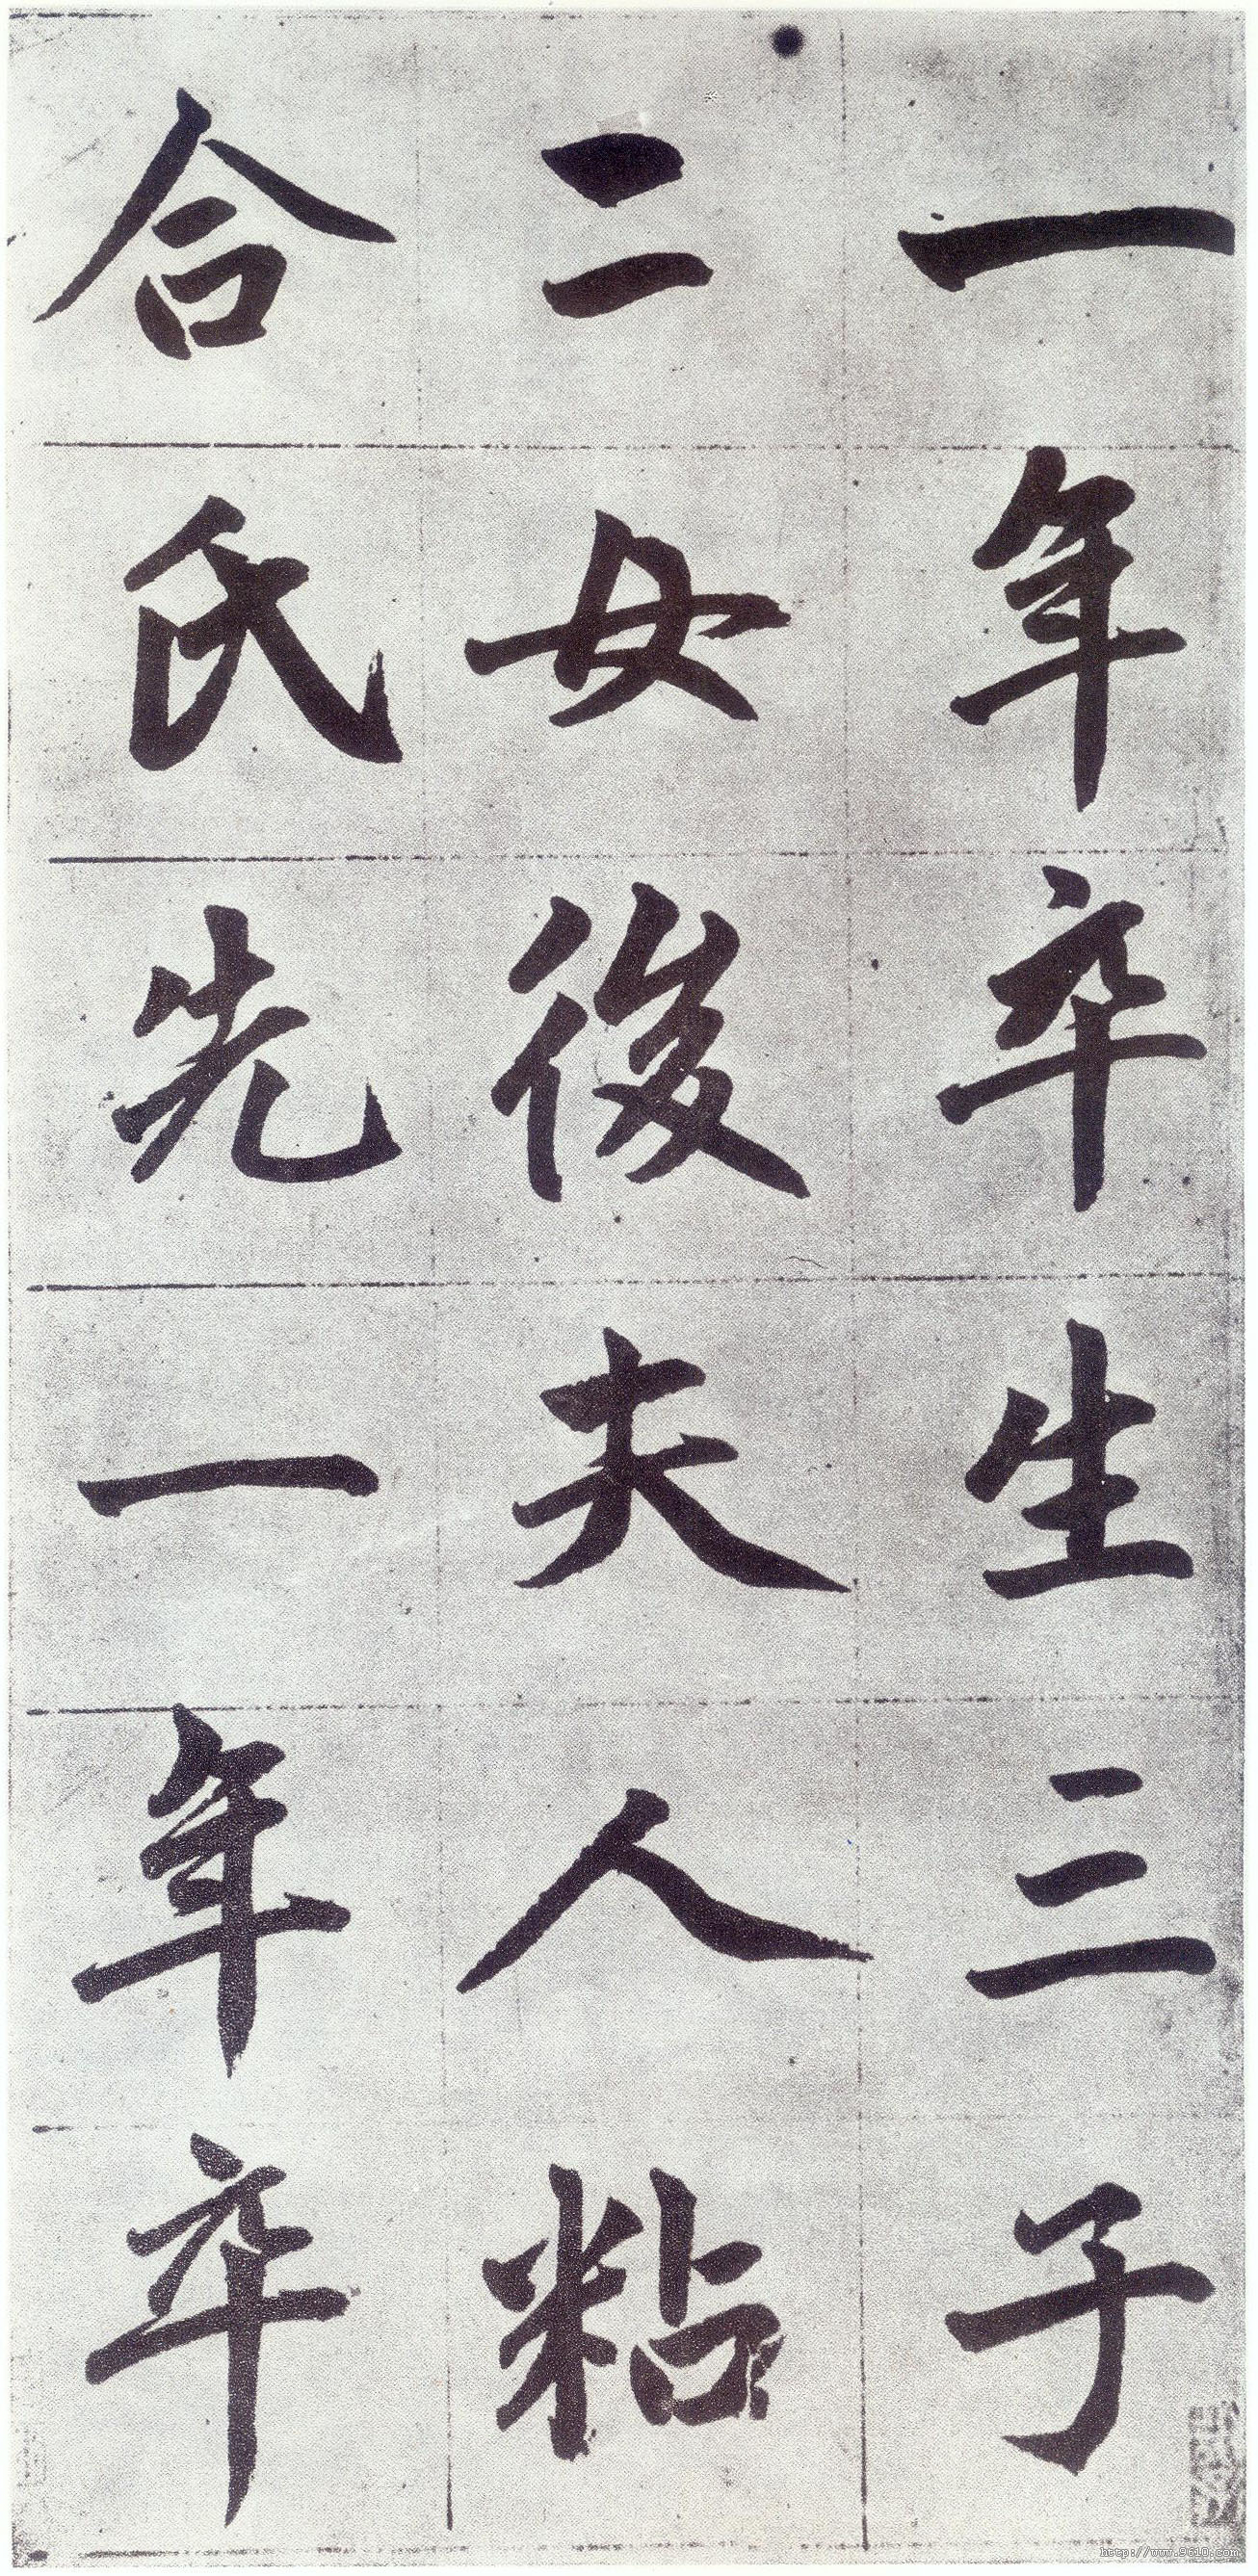 一年卒生三子
二女後夫人粘
合氏先一年卒
http://www.9610.com